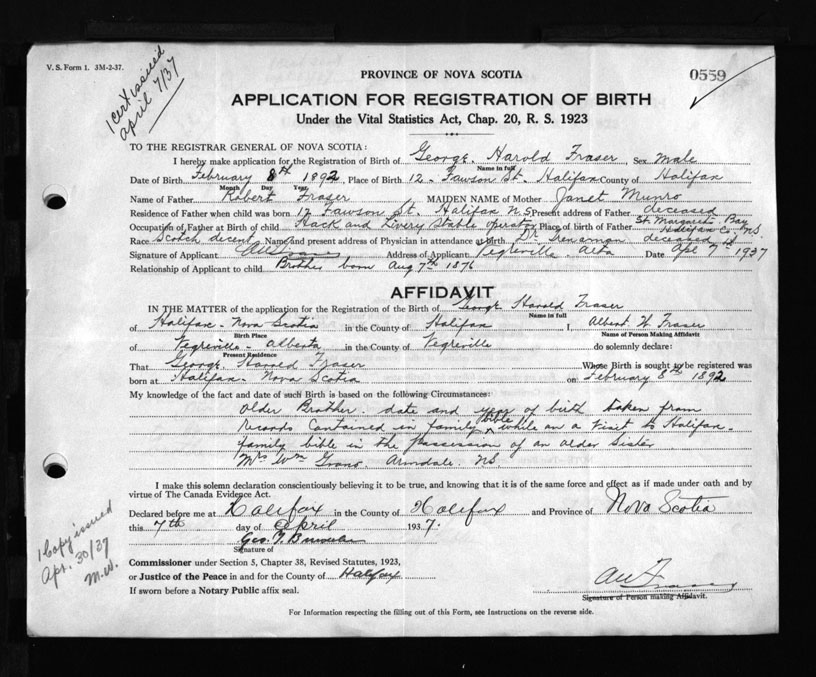 V. S. Form 1. 3M-2-37.
1 cert issued
april 7/37
0559
PROVINCE OF NOVA SCOTIA
APPLICATION FOR REGISTRATION OF BIRTH
Under the Vital Statistics Act, Chap. 20, R. S. 1923
TO THE REGISTRAR GENERAL OF NOVA SCOTIA:
I hereby make application for the Registration of Birth of George Harold Fraser, Sex male
Name in full
Date of Birth February 8th 1892, Place of Birth 12 - Fawson St. Halifax County of Halifax
Month Day Year
Name of Father Robert Fraser MAIDEN NAME of Mother Janet Munro
Residence of Father when child was born 12 Fawson St. Halifax N.S Present address of Father deceased
Occupation of Father at Birth of child Hack and Livery Stable operator Place of birth of Father St. Margarets Bay Halifax Co. N.S.
Race Scotch decent Name and present address of Physician in attendance at birth Dr. deceased
Signature of Applicant Address of Applicant Vegreville - Alta Date Apl 7th 1937
Relationship of Applicant to child Brother born Aug 7th 1876
AFFIDAVIT
IN THE MATTER of the application for the Registration of the Birth of George Harold Fraser
Name in full
of Halifax - Nova Scotia in the County of Halifax I, Albert W Fraser
Birth Place Name of Person Making Affidavit
of Vegreville - Alberta in the County of Vegreville do solemnly declare:
Present Residence
That George Harold Fraser Whose Birth is sought to be registered was
born at Halifax - Nova Scotia on February 8th 1892
My knowledge of the fact and date of such Birth is based on the following Circumstances:
Older Brother. date and year of birth taken from
records contained in family bible while on a visit to Halifax -
family bible in the possession of an older Sister
Mrs Wm Armdale. N.S.
I make this solemn declaration conscientiously believing it to be true, and knowing that it is of the same force and effect as if made under oath and by
virtue of The Canada Evidence Act.
Declared before me at Halifax in the County of Halifax and Province of Nova Scotia
this 7th day of April 1937.
Geo. T.
Signature of
1 Copy issued
Apr. 30/37
M.W.
Commissioner under Section 5, Chapter 38, Revised Statutes, 1923,
or Justice of the Peace in and for the County of Halifax
If sworn before a Notary Public affix seal.
AW Fraser
Signature of Person making Affidavit.
For Information respecting the filling out of this Form, see Instructions on the reverse side.